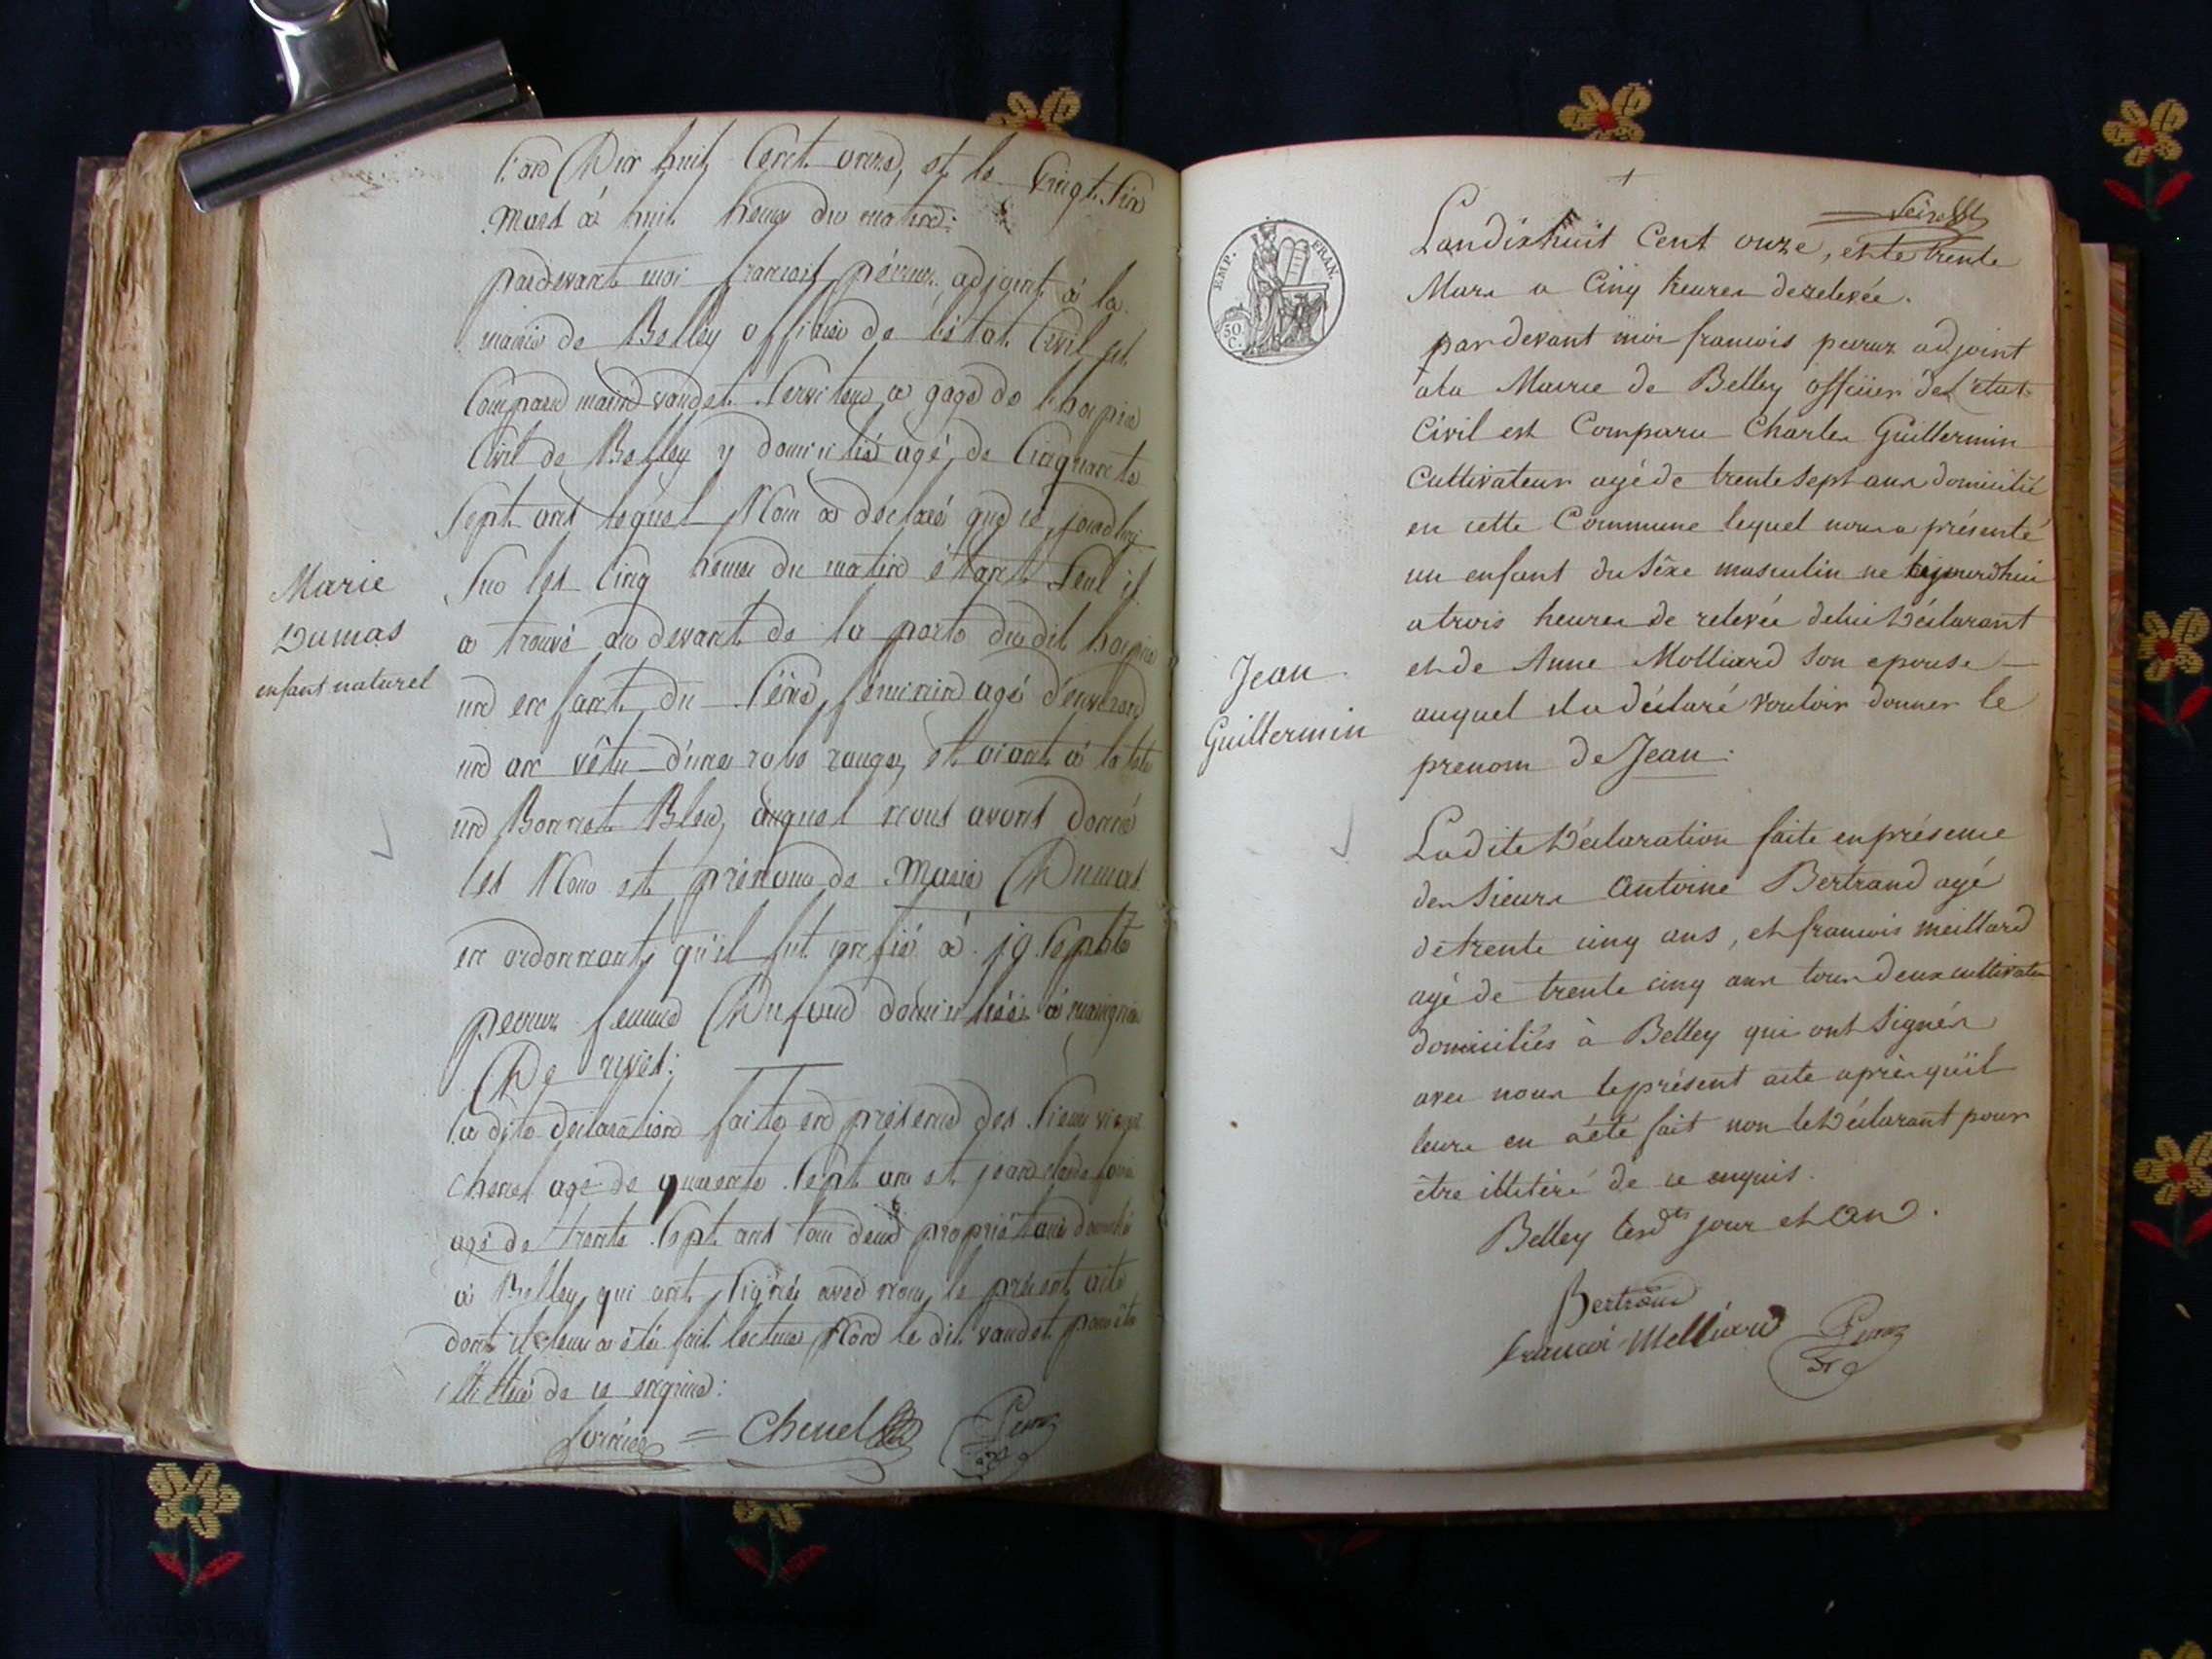 Marie
Dumas
enfant naturel
L'an Dix huit Cent onze, et le Vingt Six
Mars à huit heures du matin:
pardevant moi francois péruuz, adjoint à la
mairie de Belley officier de l'état Civil est
Comparu vaudet Serviteur a gage de l'hospice
Civil de Belley y domicilié agé de Cinquante
Sept ans lequel Nous a declaré que ce jourdhuy
Sur les Cinq heures du matin étant Seul il
a trouvé au devant de la porte du dit hospice
un enfant du Séxe féminin agé d'environ
un an vêtu d'une robe rouge, et aiant à la tete
un Bonnet Bleu, auquel nous avons donné
les Nom et prénoms de Marie Dumas
en ordonnant qu'il fut confié à
peruuz femme domiciliée à
De
la dite déclaration faite en présence des Sieurs
Chenel agé de quarante Sept ans et jean claude
agé de trente Sept ans tous deux propriétaires domiciliés
à Belley qui ont Signés avec nous le présent acte
dont il leur a été fait lecture Non le dit vaudet pour être
illitteré de ce enquis:
Chenel
Jean
Guillermin
EMP. FRAN.
50 C.
Landixhuit Cent onze, et le trente
Mars a Cinq heures de relevée.
pardevant moi francois peruuz adjoint
ala Mairie de Belley officier de l'état
Civil est Comparu Charles Guillermin
Cultivateur agé de trente sept ans domicilié
en cette Commune lequel nous a présenté
un enfant du Sêxe masculin ne aujourdhui
a trois heures de relevée de lui Déclarant
et de Anne Molliard son epouse
auquel il a déclaré vouloir donner le
prenom de Jean:
Ladite Déclaration faite en présence
des Sieurs Antoine Bertrand agé
de trente cinq ans, et francois meillard
agé de trente cinq ans tous deux cultivateur
domiciliés à Belley qui ont Signés
avec nous le présent acte après qu'il
leurs en a été fait non le Déclarant pour
être illitéré de ce enquis.
Belley lesdts jour et An.
Bertrand
francoi Melliard